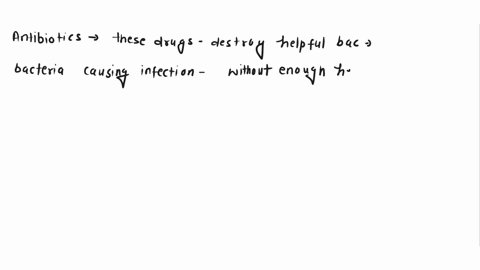 Antibiotics → these drugs - destroy helpful bac →
bacteria causing infection - without enough h